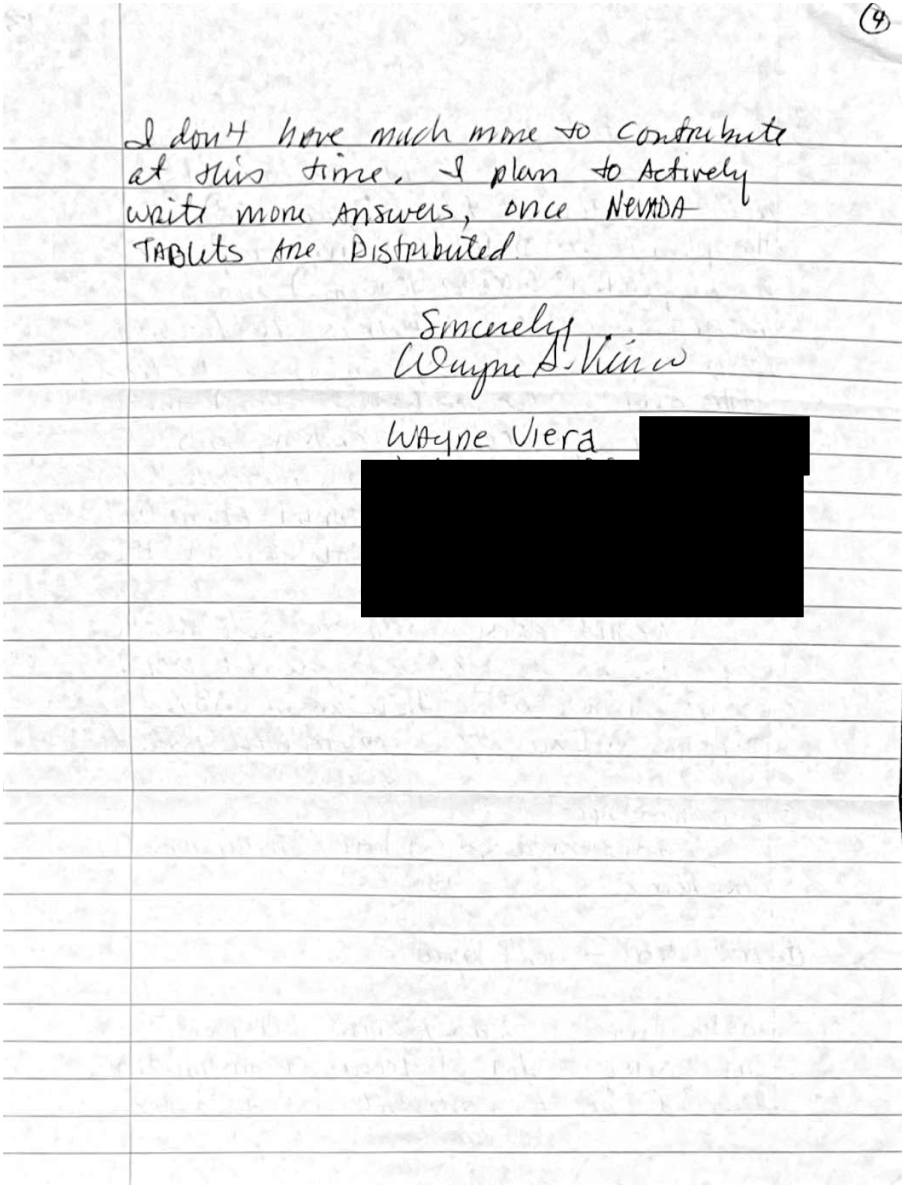 4
I don't have much more to contribute
at this time. I plan to Actively
write more Answers, once NEVADA
TABlets Are Distributed.
Sincerely,
Wayne A. Viera
WAyne Viera